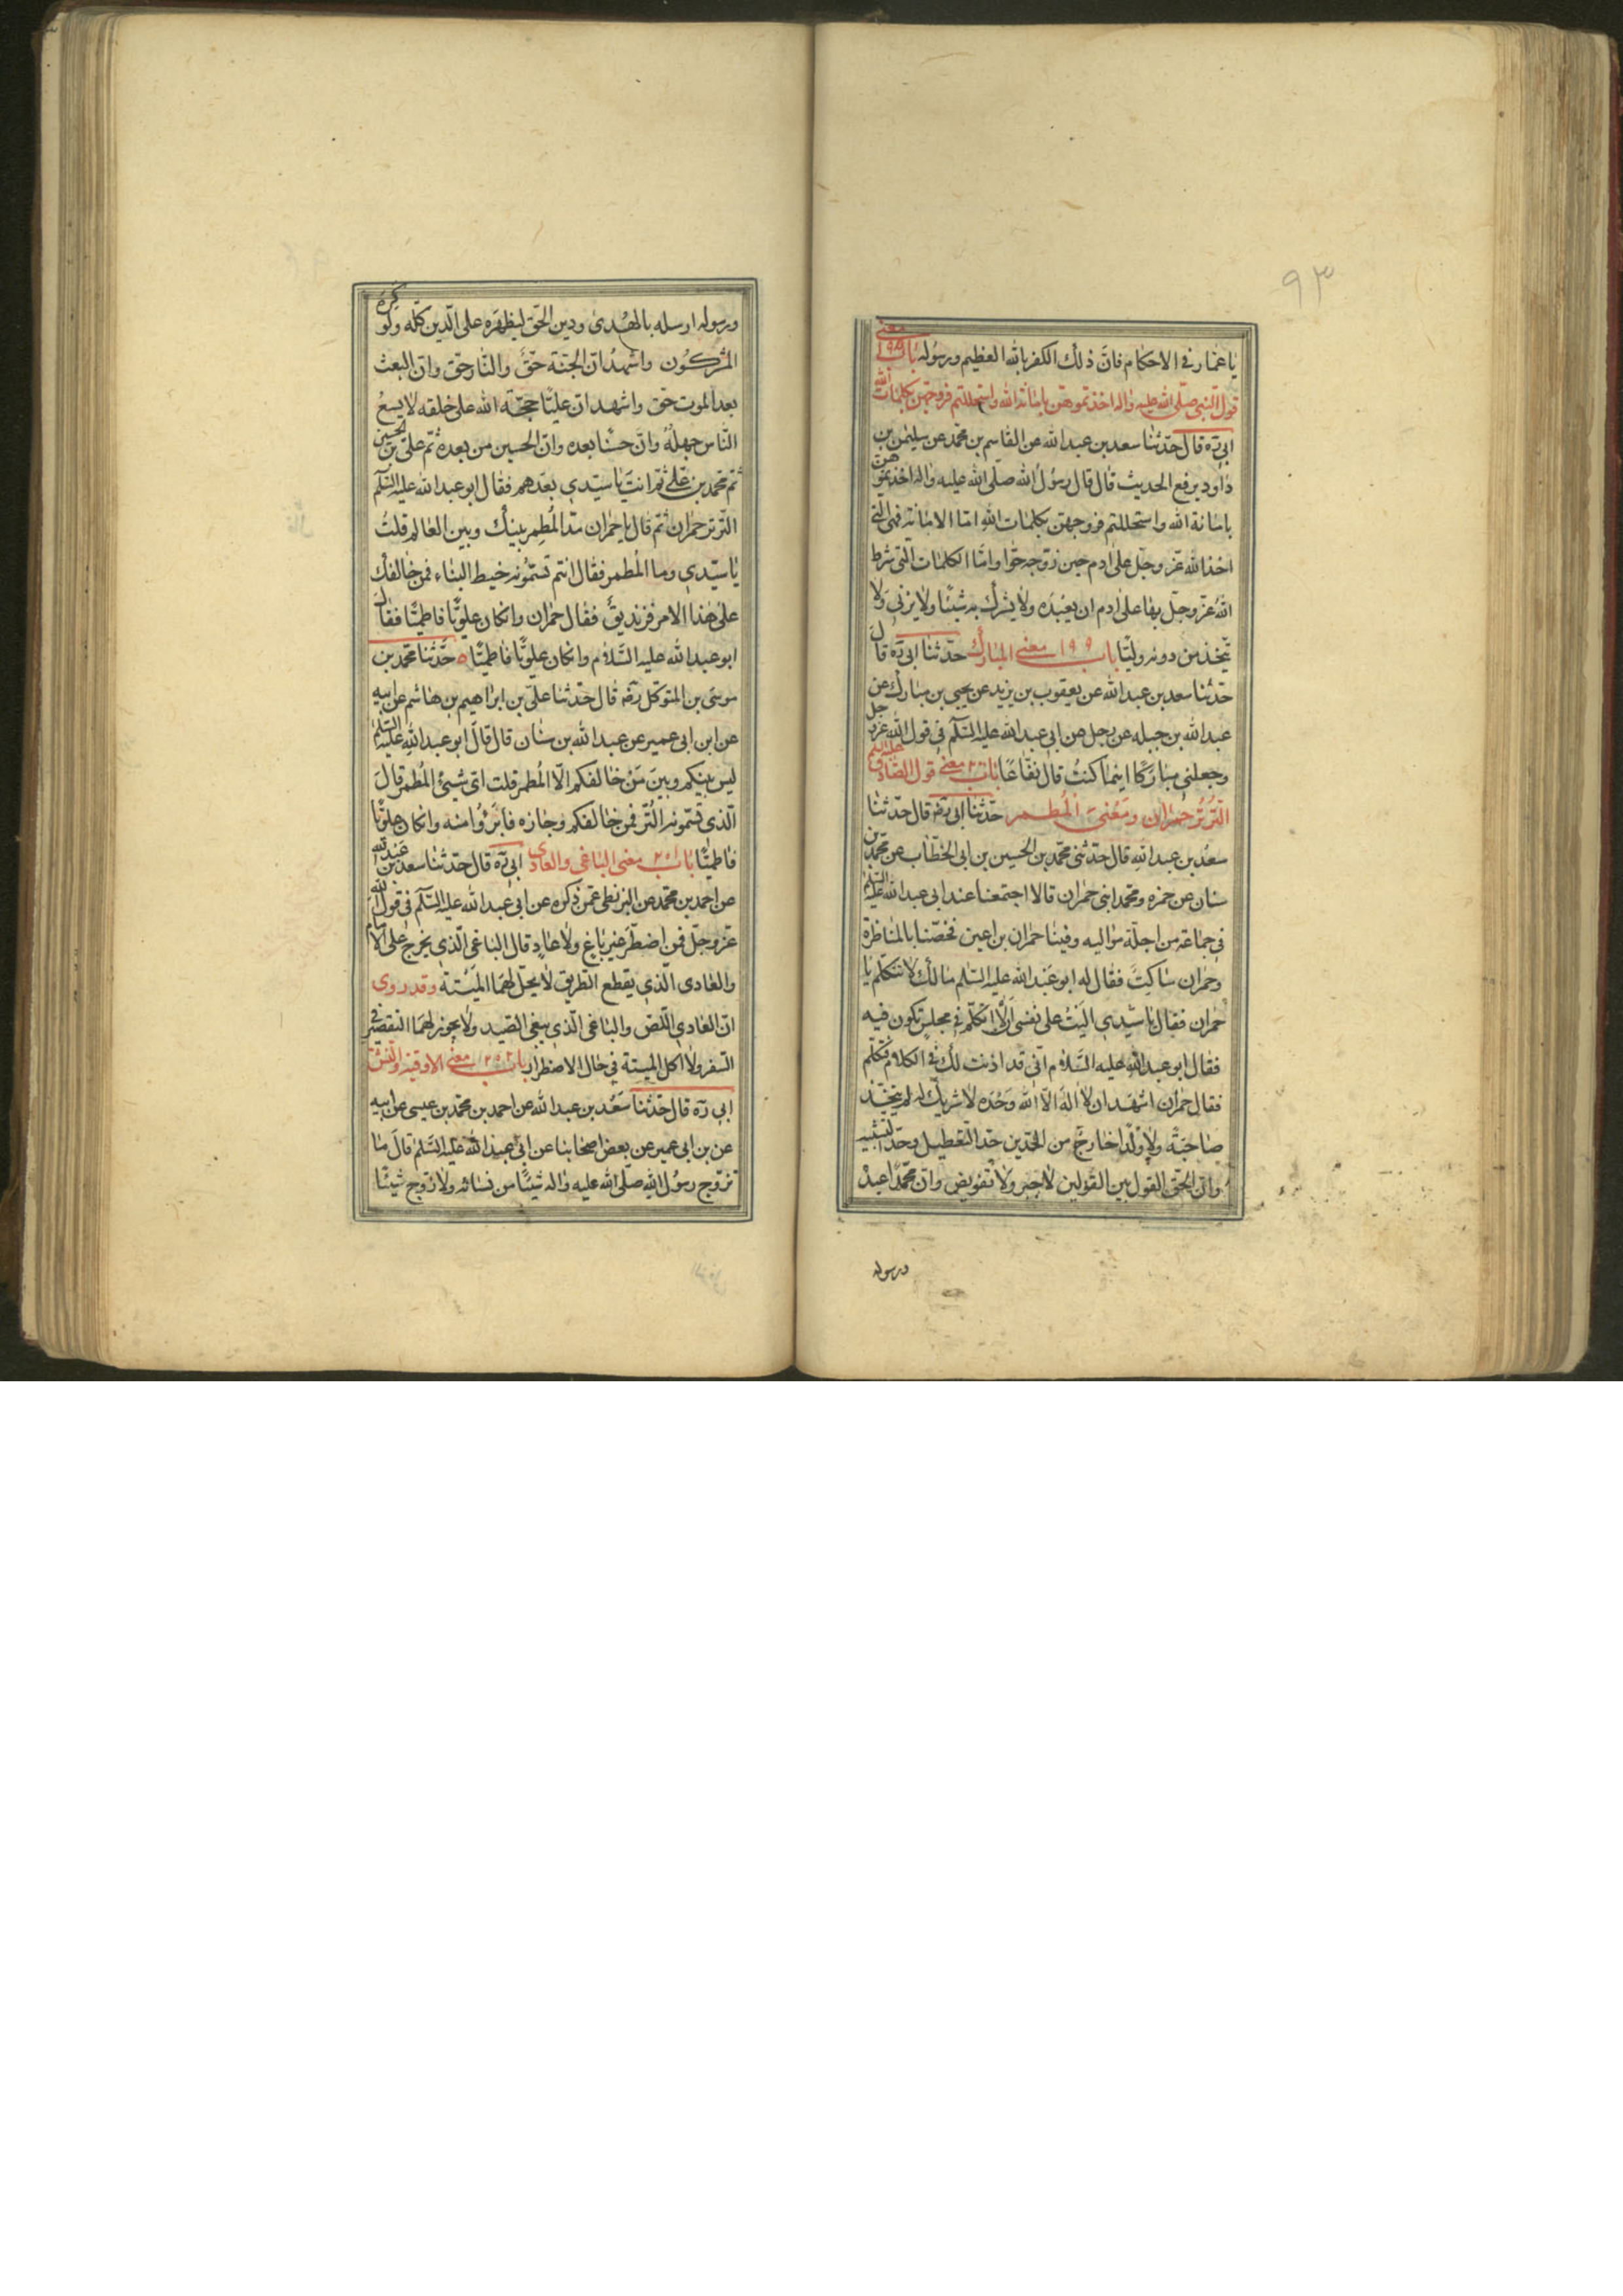 ۹۳
يا عمار في الاحكام فانّ ذلك الكفر بالله العظيم ورسوله باب ۱۹۸ معنى
قول النبي صلّى الله عليه واله اخذتموهن بامانة الله واستحللتم فروجهن بكلمات الله
ابى ره قال حدّثنا سعد بن عبد الله عن القاسم بن محمد عن سليمن بن
داود يرفع الحديث قال قال رسول الله صلّى الله عليه واله اخذتموهن
بامانة الله واستحللتم فروجهن بكلمات الله امّا الامانة فهى التى
اخذ الله عزّ وجلّ على ادم حين زوّجه حوّا وامّا الكلمات الّتى شرط
الله عزّ وجلّ بها على ادم ان يعبده ولا يشرك به شيئا ولا يزنى ولا
يتّخذ من دونه وليّا باب ۱۹۹ معنى المبارك حدّثنا ابى ره قال
حدّثنا سعد بن عبد الله عن يعقوب بن يزيد عن يحيى بن مبارك عن
عبد الله بن جبله عن رجل عن ابى عبد الله عليه السّلم في قول الله عز وجل
وجعلني مباركا اينما كنتُ قال نفّاعا باب ۲۰۰ معنى قول الصّادق عليه السلم
التُّرتُّر حمران ومعنى المُطمر حدّثنا ابى ره قال حدّثنا
سعد بن عبد الله قال حدّثنى محمّد بن الحسين بن ابى الخطّاب عن محمّد بن
سنان عن حمزه ومحمد ابنى حمران قالا اجتمعنا عند ابى عبد الله عليه السّلم
في جماعة من اجلّة مواليه وفينا حمران بن اعين فخضنا بالمناظرة
وحمران ساكت فقال له ابو عبد الله عليه السّلم مالك لا تتكلم يا
حمران فقال يا سيّدى اليت على نفسى ان لا اتكلّم في مجلس تكون فيه
فقال ابو عبد الله عليه السّلام انّى قد اذنت لك في الكلام فتكلّم
فقال حمران اشهد ان لا اله الّا الله وحده لا شريك له لم يتّخذ
صاحبة ولا ولدا خارج من الحدّين حدّ التّعطيل وحدّ التشبيه
وانّ الحقّ القول بين القولين لا جبر ولا تفويض وانّ محمّدا عبدُ
ورسوله
ورسوله ارسله بالهدى ودين الحق ليظهره على الدّين كلّه ولو كره
المشركون واشهد انّ الجنّة حقّ والنّار حقّ وانّ البعث
بعد الموت حق واشهد انّ عليّا حجّة الله على خلقه لا يسعُ
النّاس جهلُهُ وانّ حسنًا بعده وانّ الحسين من بعده ثمّ علىّ بن الحسين
ثمّ محمد بن علىّ ثم انت يا سيّدى بعدهم فقال ابو عبد الله عليه السّلم
التّرتر حمران ثمّ قال يا حمران مدّ المُطمر بينك وبين العالم قلتُ
يا سيّدى وما المُطمر فقال انتم تسمّونه خيط البنّاء فمن خالفك
على هذا الامر فزنديق فقال حمران وان كان علويّا فاطميّا فقال
ابو عبد الله عليه السّلام وان كان علويّا فاطميّا حدّثنا محمد بن
موسى بن المتوكل ره قال حدّثنا علىّ بن ابراهيم بن هاشم عن ابيه
عن ابن ابى عمير عن عبد الله بن سنان قال قال ابو عبد الله عليه السّلم
ليس بينكم وبين من خالفكم الّا المُطمر قلت اىّ شيئ المُطمر قال
الّذى تسمّونه التُّر فمن خالفكم وجازه فابرؤا منه وان كان علويّا
فاطميّا باب ۲۰۱ معنى الباغى والعادى ابى ره قال حدّثنا سعد بن عبد الله
عن احمد بن محمّد عن البزنطى عمّن ذكره عن ابى عبد الله عليه السّلم في قول الله
عزّ وجلّ فمن اضطرّ غير باغ ولا عاد قال الباغى الّذى يخرج على الامام
والعادى الّذى يقطع الطّريق لا يحلّ لهما الميتة وقد روى
انّ العادى اللّص والباغى الّذى يبغى الصّيد ولا يجوز لهما التقصير في
السّفر ولا اكل الميتة في حال الاضطرار باب ۲۰۲ معنى الاوقية والنّش
ابى ره قال حدّثنا سعد بن عبد الله عن احمد بن محمّد بن عيسى عن ابيه
عن بن ابى عمير عن بعض اصحابنا عن ابى عبد الله عليه السّلم قال ما
تزوّج رسول الله صلّى الله عليه واله شيئًا من نسائه ولا زوّج شيئًا